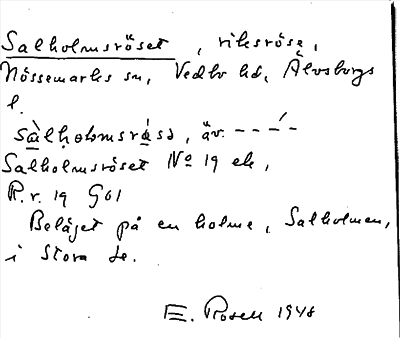 Salholmsröset, riksröse,
Nössemarks sn, Vedbo hd, Älvsborgs
l.
sàlholomsrásd, äv. – – –́ –
Salholmsröset No 19 ek,
R.r. 19 G61
Beläget på en holme, Salholmen,
i Stora Le.
E. Rosell 1948